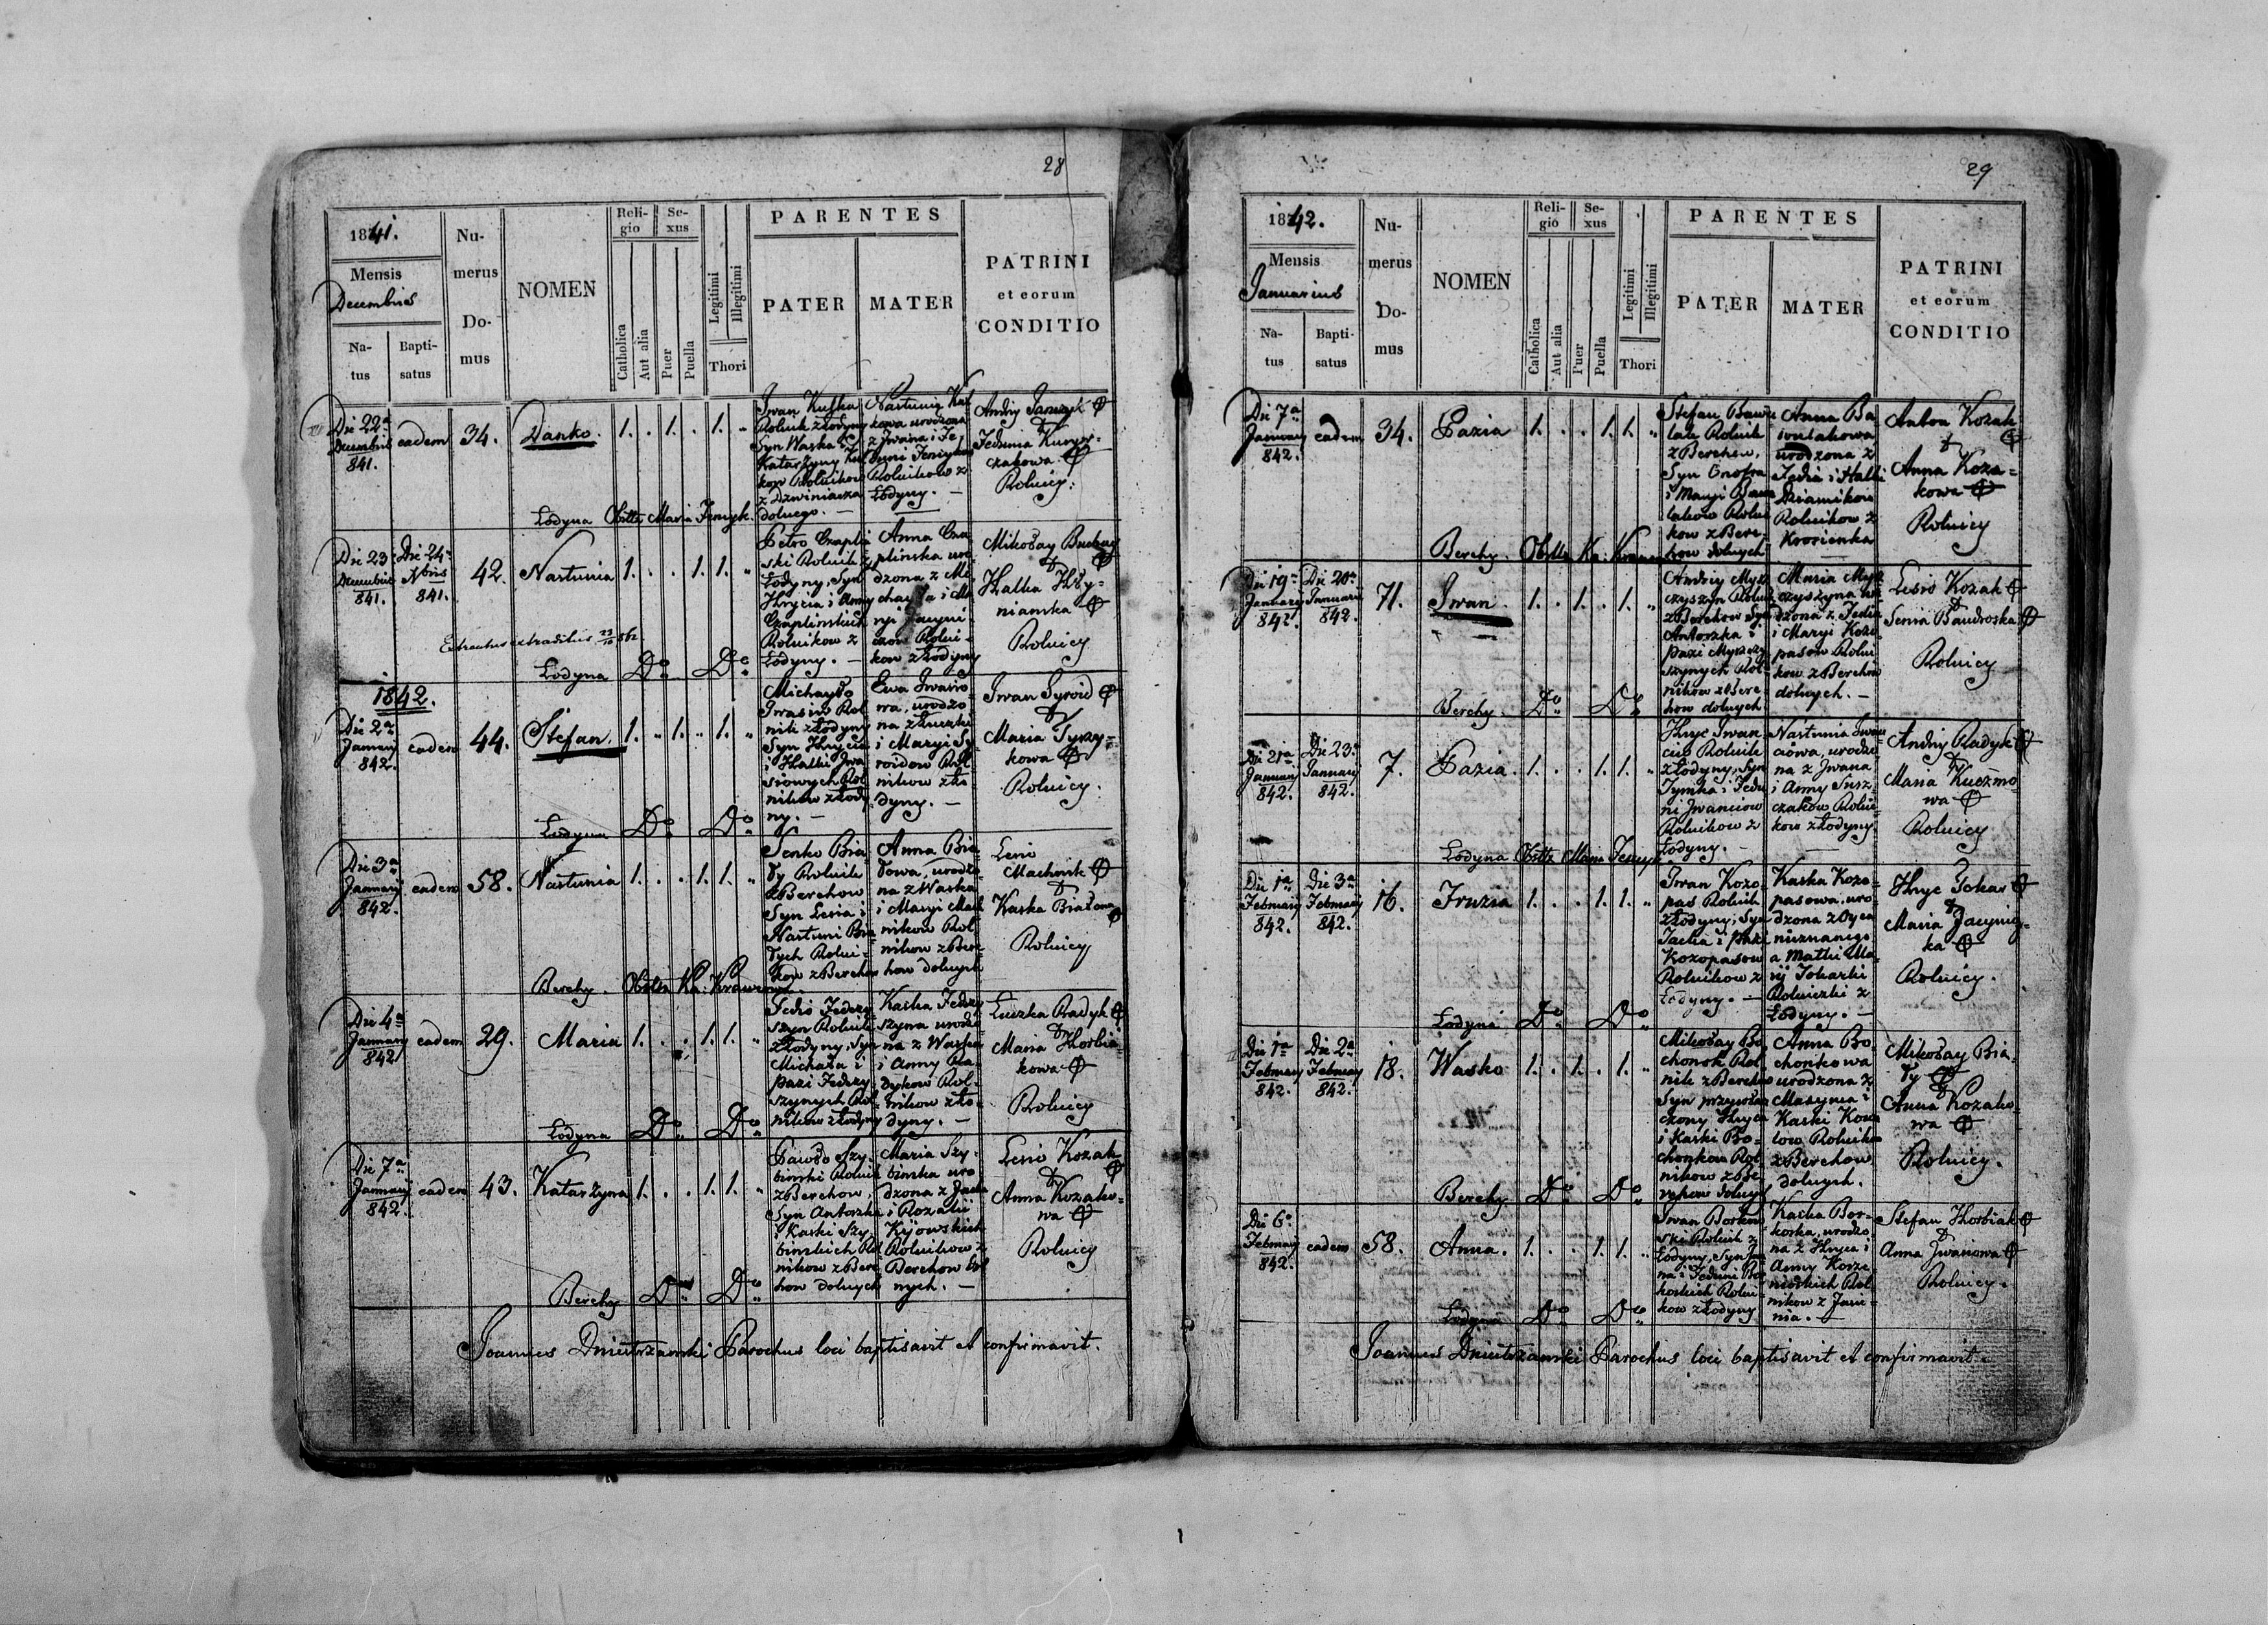 28
1841.
Mensis
Decembris
Na-
tus
Bapti-
satus
Nu-
merus
Do-
mus
NOMEN
Reli-
gio
Catholica
Aut alia
Se-
xus
Puer
Puella
Legitimi
Illegitimi
Thori
PARENTES
PATER
MATER
PATRINI
et eorum
CONDITIO
Die 22a
Decembris
841.
eadem
34.
Danko.
1. . 1. . 1. "
Iwan
Rolnik z Łodyny
Syn Waska i
Katarzyny
kow Rolnikow
z Dzwiniacza
dolnego. —
Nastunia
kowa urodzona
z Iwana i Fe
Rolnikow z
Łodyny. —
Andry
Fedunia
czakowa
Rolnicy.
Łodyna Obsttx Maria Fenyk.
Die 23
Decembris
841.
Die 24a
Nbris
841.
42.
Nastunia
1. . . 1. 1. "
Petro Czaplin
ski Rolnik z
Łodyny, Syn
Hrycia i Anny
Czaplinskich
Rolnikow z
Łodyny. —
Anna Cza
plinska uro
dzona z Mi
kow z Łodyny
Mikołay
Halka Hry-
niamka
Rolnicy
Extractus extraditus 23/10 862.
Łodyna Do Do
1842.
Die 2a
January
842.
eadem
44.
Stefan
1. " 1. " 1. "
Michayło
Iwasiw Rol
nik z Łodyny
Syn Hrycia
i Halki Iwa
siowych Rol
nikow z Łody
ny. —
Ewa Iwasio-
wa, urodzo
na z
i Maryi Sy-
roidow Rol
nikow z Ło
dyny. —
Iwan Syroid
Maria Tyszy-
kowa
Rolnicy.
Łodyna Do Do
Die 3a
January
842.
eadem
58.
Nastunia
1. . . 1. 1. "
Senko Bia
ły Rolnik
z Berchow
Syn Lesia i
Nastuni Bia-
łych Rolni-
kow z Berchow
Anna Bia
łowa, urodzo-
na z Waska
i Maryi Mach
nikow Rol
nikow z Ber-
how dolnych
Lesio
Machnik
Kaska Białowa
Rolnicy
Berehy. Obsttx Ka: Krawcowa.
Die 4a
January
842
eadem
29.
Maria
1. . . 1. 1. "
Fedio Fedczy
szyn Rolnik
z Łodyny, Syn
Michała i
Pazi Fedczy
szynych Rol
nikow z Łodyny
Kaska Fedczy
szyna urodzo
na z Waska
i Anny Ra
dykow Rol-
nikow z Ło-
dyny. —
Luczka Radyk
Maria Horbia-
kowa
Rolnicy
Łodyna Do Do
Die 7a
January
842.
eadem
43.
Katarzyna
1. . . 1. 1. "
Pawło Szy-
binski Rolnik
z Berchow,
Syn Antoszka
i Kaski Szy
binskich Rol
nikow z Bere
how dolnych
Maria Szy-
binska uro
dzona z Jacka
i Rozalii
Kyjowskich
Rolnikow z
Berehow dol
nych. —
Lesio Kozak
Anna Kozako-
wa
Rolnicy
Berehy Do Do
Joannes Dmitrzanski Parochus loci baptisavit et confirmavit.
29
1842.
Mensis
Januarius
Na-
tus
Bapti-
satus
Nu-
merus
Do-
mus
NOMEN
Reli-
gio
Catholica
Aut alia
Se-
xus
Puer
Puella
Legitimi
Illegitimi
Thori
PARENTES
PATER
MATER
PATRINI
et eorum
CONDITIO
Die 7a
January
842.
eadem
34.
Pazia
1. . . 1. 1. "
Stefan
Rolnik
z Berehow,
Syn Onofra
i Maryi
Rolni
kow z Bere-
how dolnych
Anna Ba
urodzona z
Fedia i Halki
Rolnikow z
Krosienka
Anton Kozak
Anna Koza-
kowa
Rolnicy
Berehy. Obsttx Ka:
Die 19a
January
842.
Die 20a
January
842.
71.
Iwan.
1. . 1. . 1. "
Andriy Mysz
czyszyn Rolnik
z Berchow Syn
Antoszka i
Pazi Myszczy
szynych Rol-
nikow z Bere-
how dolnych
Maria Mysz
czyszyna uro
dzona z Fedia
i Maryi Kozo
pasow Rolni
kow z Berehow
dolnych. —
Lesio Kozak
Senia
Rolnicy
Berehy. Do Do
Die 21a
January
842.
Die 23a
January
842.
7.
Pazia.
1. . . 1. 1. "
Hryc Iwan
ciw Rolnik
z Łodyny, Syn
Tymka i Fedu
ni Iwanciow
Rolnikow z
Łodyny. —
Nastunia Iwan
ciowa, urodzo
na z Iwana
i Anny Susz
czakow Rolni-
kow z Łodyny.
Andriy Radyk
Maria Kuczmo-
wa
Rolnicy
Łodyna Obsttx Maria
Die 1a
February
842.
Die 3a
February
842.
16.
Fruzia
1. . . 1. 1. "
Iwan Kozo-
pas Rolnik
z Łodyny; Syn
Jacka i Pazi
Kozopasow
Rolnikow z
Łodyny. —
Kaska Kozo-
pasowa, uro-
dzona z Oyca
nieznanego
a Matki Ma-
ryi Tokarki
Rolniczki z
Łodyny. —
Hryc Tokar
Maria Jacyniy-
ka
Rolnicy.
Łodyna Do Do
Die 1a
February
842.
Die 2a
February
842.
18.
Wasko
1. . 1. . 1. "
Mikołay Bo
chonok Rol
nik z Berehow
Syn przywła
czony Hryca
i Kaski Bo-
chonkow Rol
nikow z Be-
rehow dolnych
Anna Bo
chonkowa
urodzona z
Maxyma i
Kaski Kow
low Rolnikow
z Berehow
dolnych.
Mikołay Bia-
ły
Anna Kozako-
wa
Rolnicy.
Berehy Do Do
Die 6a
February
842.
eadem
58.
Anna.
1. . . 1. 1. "
Iwan Borkow
ski Rolnik z
Łodyny, Syn Iwa
na i Feduni Bor
koskich Rolni-
kow z Łodyny
Kaska Bor-
koska, urodzo
na z Hryca i
Anny Korze-
niowskich Rol
nikow z Jase-
nia. —
Stefan Horbiak
Anna Iwasiowa
Rolnicy.
Łodyna Do Do
Joannes Dmitrzanski Parochus loci baptisavit et confirmavit.